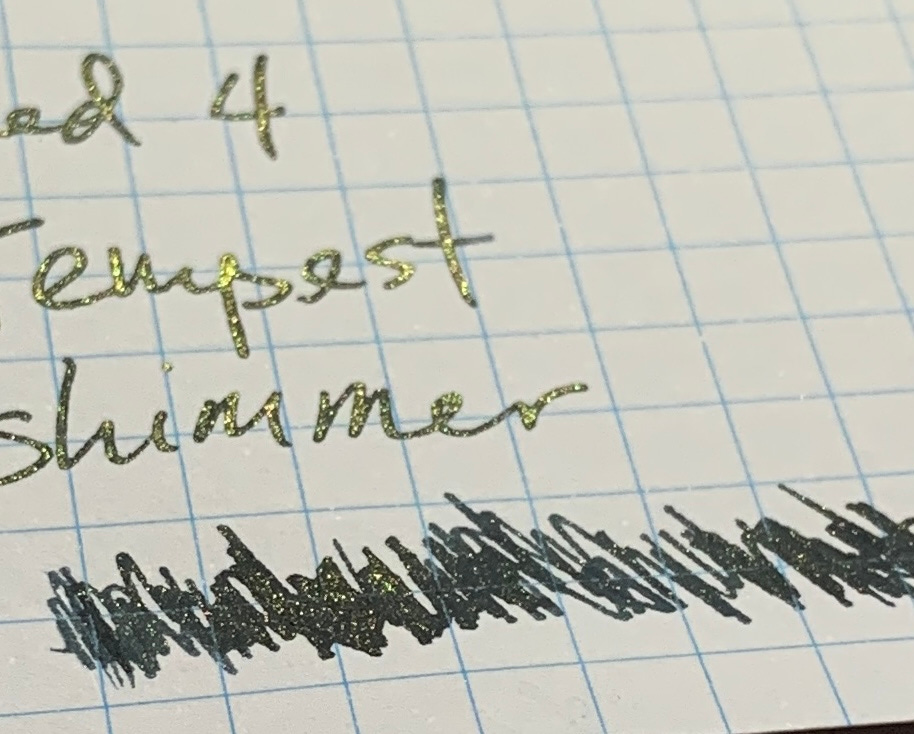 ed 4
Tempest
shimmer